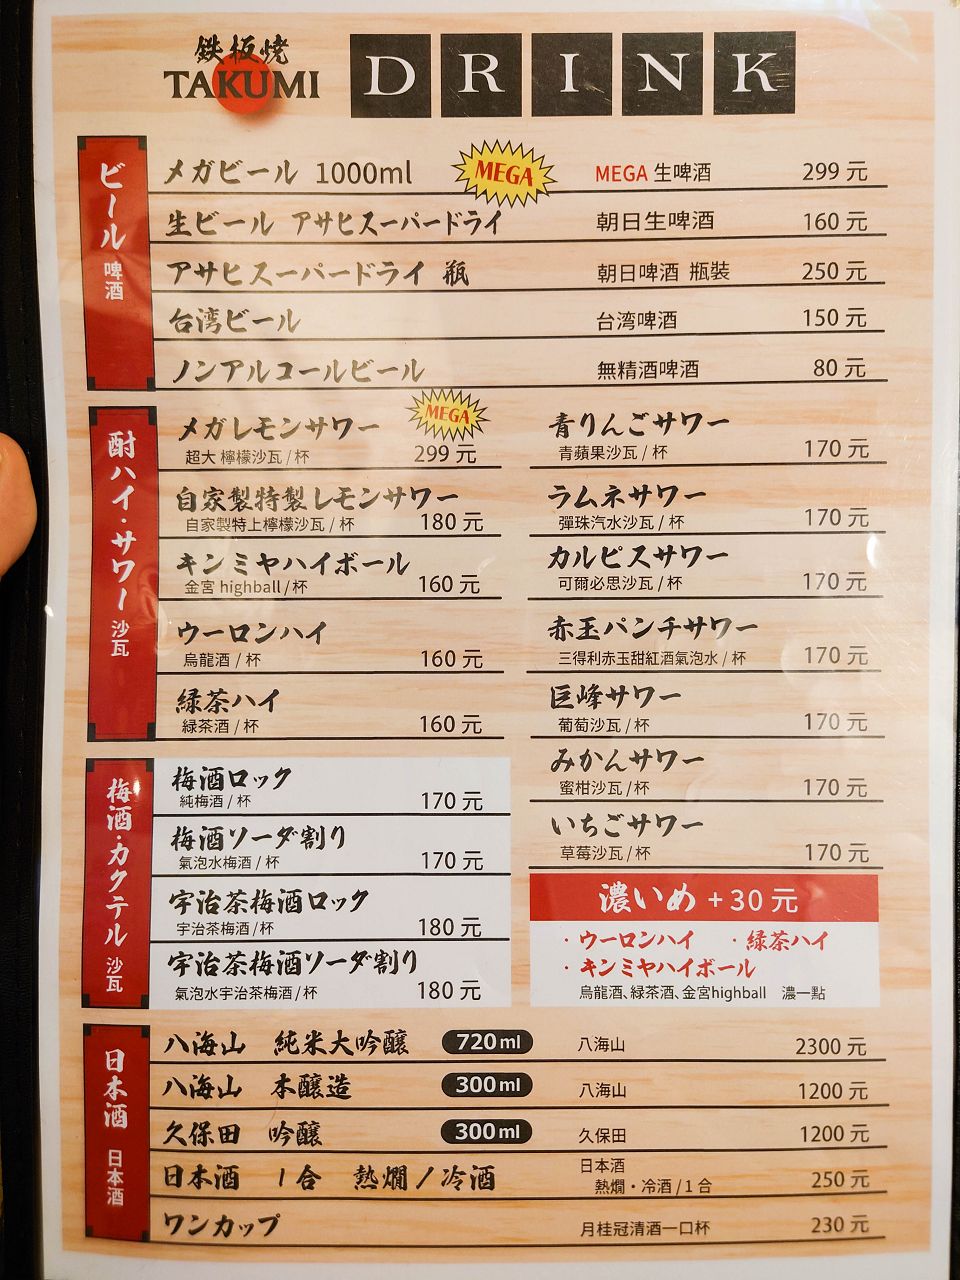 鉄板焼
TAKUMI
DRINK
ビール 啤酒
メガビール 1000ml MEGA MEGA 生啤酒 299 元
生ビール アサヒスーパードライ 朝日生啤酒 160 元
アサヒスーパードライ 瓶 朝日啤酒 瓶裝 250 元
台湾ビール 台湾啤酒 150 元
ノンアルコールビール 無精酒啤酒 80 元
酎ハイ・サワー 沙瓦
メガレモンサワー MEGA
超大 檸檬沙瓦 / 杯 299 元
自家製特製レモンサワー
自家製特上檸檬沙瓦 / 杯 180 元
キンミヤハイボール
金宮 highball / 杯 160 元
ウーロンハイ
烏龍酒 / 杯 160 元
緑茶ハイ
緑茶酒 / 杯 160 元
青りんごサワー
青蘋果沙瓦 / 杯 170 元
ラムネサワー
彈珠汽水沙瓦 / 杯 170 元
カルピスサワー
可爾必思沙瓦 / 杯 170 元
赤玉パンチサワー
三得利赤玉甜紅酒氣泡水 / 杯 170 元
巨峰サワー
葡萄沙瓦 / 杯 170 元
みかんサワー
蜜柑沙瓦 / 杯 170 元
いちごサワー
草莓沙瓦 / 杯 170 元
濃いめ + 30 元
・ウーロンハイ ・緑茶ハイ
・キンミヤハイボール
烏龍酒、緑茶酒、金宮highball 濃一點
梅酒・カクテル 沙瓦
梅酒ロック
純梅酒 / 杯 170 元
梅酒ソーダ割り
氣泡水梅酒 / 杯 170 元
宇治茶梅酒ロック
宇治茶梅酒 / 杯 180 元
宇治茶梅酒ソーダ割り
氣泡水宇治茶梅酒 / 杯 180 元
日本酒 日本酒
八海山 純米大吟醸 720ml 八海山 2300 元
八海山 本醸造 300ml 八海山 1200 元
久保田 吟醸 300ml 久保田 1200 元
日本酒 1合 熱燗 / 冷酒 日本酒 250 元
熱燗・冷酒 / 1 合
ワンカップ 月桂冠清酒一口杯 230 元